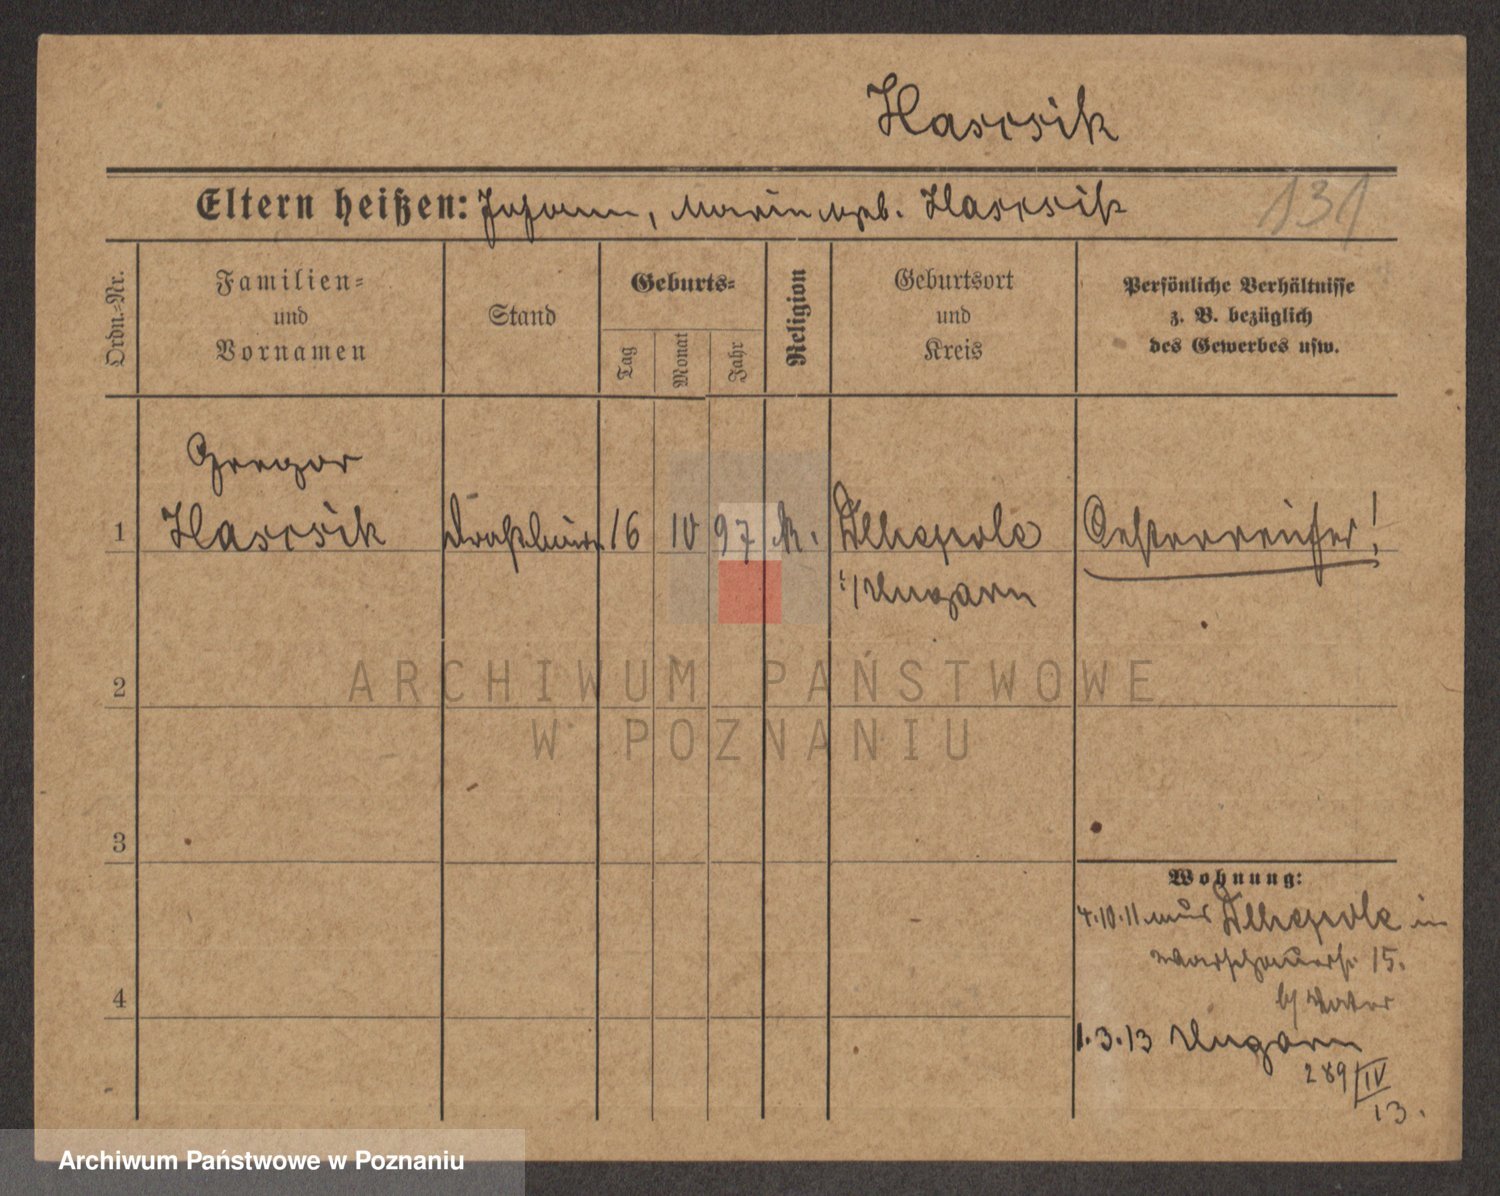 Hascsik
Eltern heißen: Johann, Maria geb. Hascsik
131
Ordn.=Nr.
Familien=
und
Vornamen
Stand
Geburts=
Tag
Monat
Jahr
Religion
Geburtsort
und
Kreis
Persönliche Verhältnisse
z. B. bezüglich
des Gewerbes usw.
Gregor
1 Hascsik 16 10 97 k. 
i/Ungarn
Oesterreicher!
2
ARCHIWUM PAŃSTWOWE
W POZNANIU
3
4
Wohnung:
4.10.11 aus in
Warschauerst. 15.
b/ Vater
1.3.13 Ungarn
289/IV
13.
Archiwum Państwowe w Poznaniu